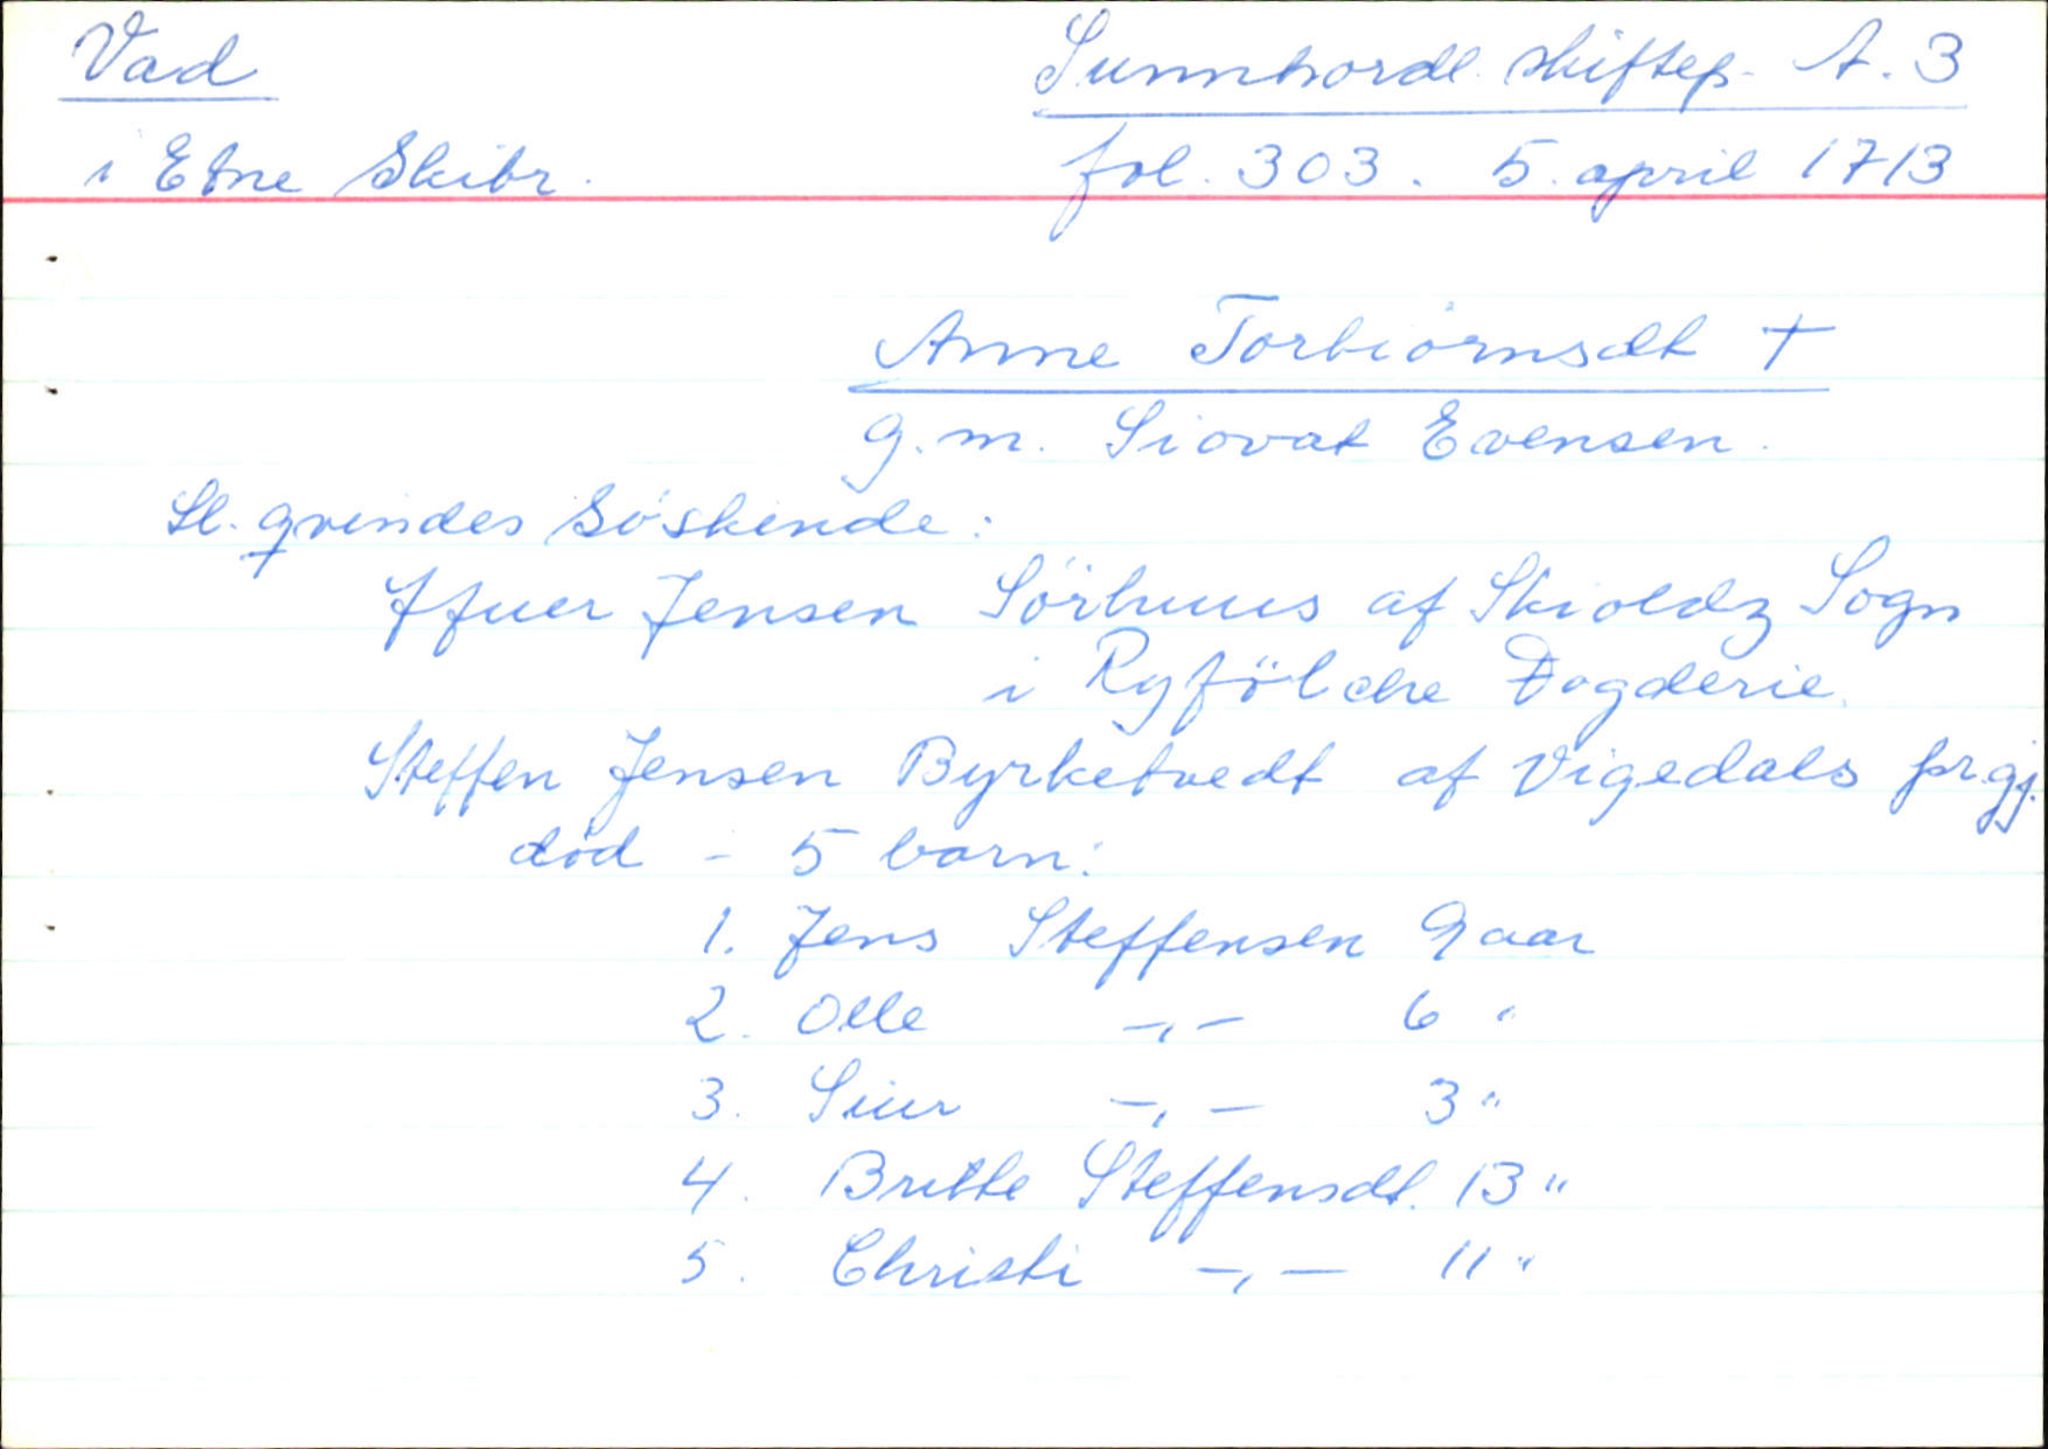 Vad
Sunnhordl. skiftep. A. 3
i Etne Skibr.
fol. 303. 5. april 1713
Anne Torbiørnsdt †
g. m. Siovat Evensen.
Sl. qvindes Søskende:
Ifuer Jensen Sørhuus af Skioldz Sogn
i Ryfølche Fogderie.
Steffen Jensen Byrketvedt af Vigedals pr.gj.
død - 5 barn:
1. Jens Steffensen 9 aar
2. Olle -,- 6 "
3. Siur -,- 3 "
4. Britte Steffensdt. 13 "
5. Christi -,- 11 "